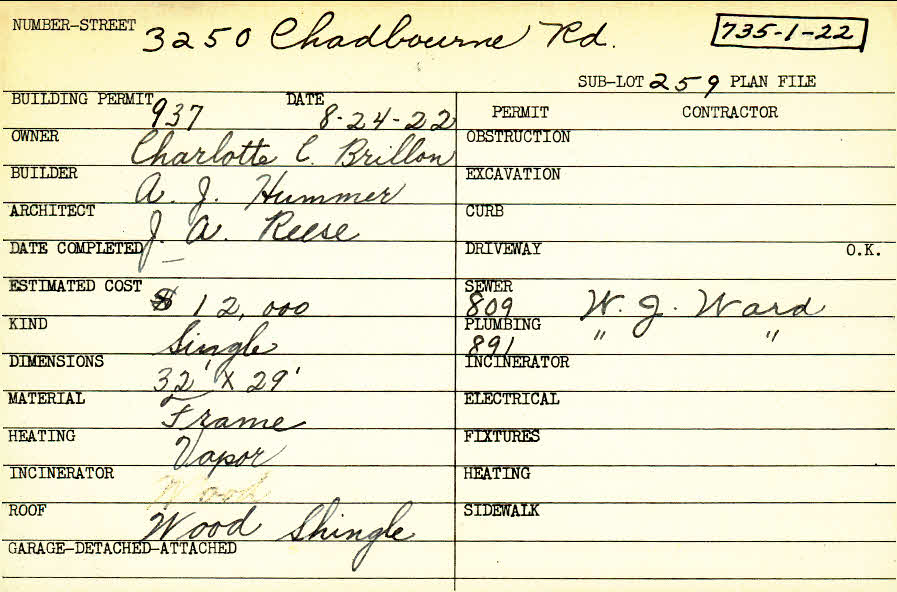 NUMBER-STREET 3250 Chadbourne Rd. 735-1-22
SUB-LOT 259 PLAN FILE
BUILDING PERMIT 937 DATE 8-24-22 PERMIT CONTRACTOR
OWNER Charlotte C. Brillon OBSTRUCTION
BUILDER A. J. Hummer EXCAVATION
ARCHITECT J. A. Reese CURB
DATE COMPLETED — DRIVEWAY O.K.
ESTIMATED COST $12,000 SEWER 809 W. J. Ward
KIND Single PLUMBING 891 " "
DIMENSIONS 32' X 29' INCINERATOR
MATERIAL Frame ELECTRICAL
HEATING Vapor FIXTURES
INCINERATOR HEATING
ROOF Wood Shingle SIDEWALK
GARAGE-DETACHED-ATTACHED